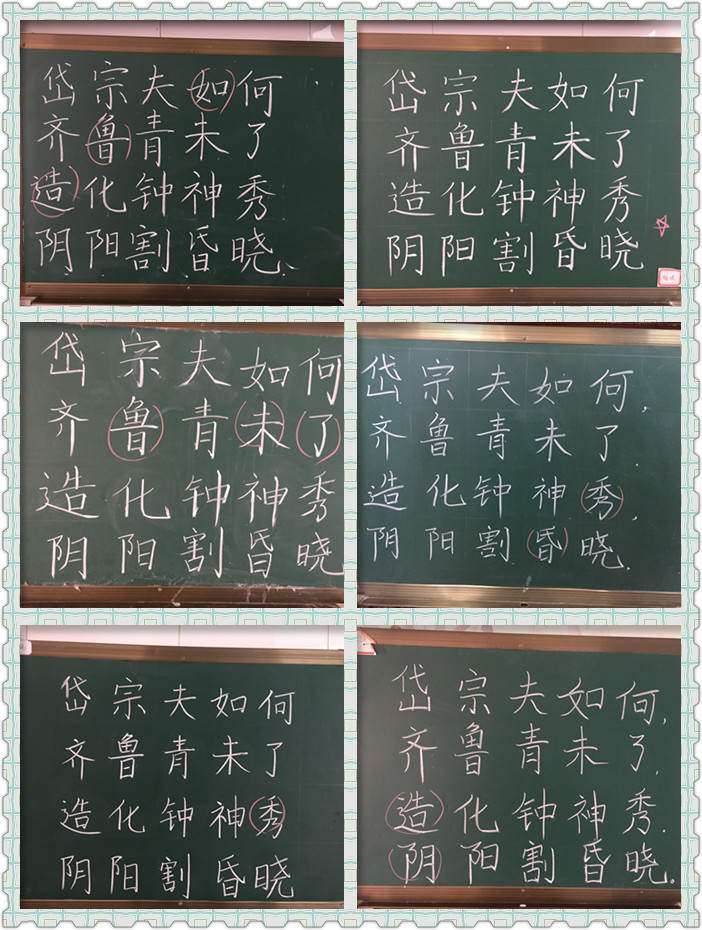 岱宗夫如何
齐鲁青未了
造化钟神秀
阴阳割昏晓
岱宗夫如何
齐鲁青未了
造化钟神秀
阴阳割昏晓
岱宗夫如何
齐鲁青未了
造化钟神秀
阴阳割昏晓
岱宗夫如何,
齐鲁青未了.
造化钟神秀,
阴阳割昏晓.
岱宗夫如何
齐鲁青未了
造化钟神秀
阴阳割昏晓
岱宗夫如何,
齐鲁青未了.
造化钟神秀.
阴阳割昏晓.